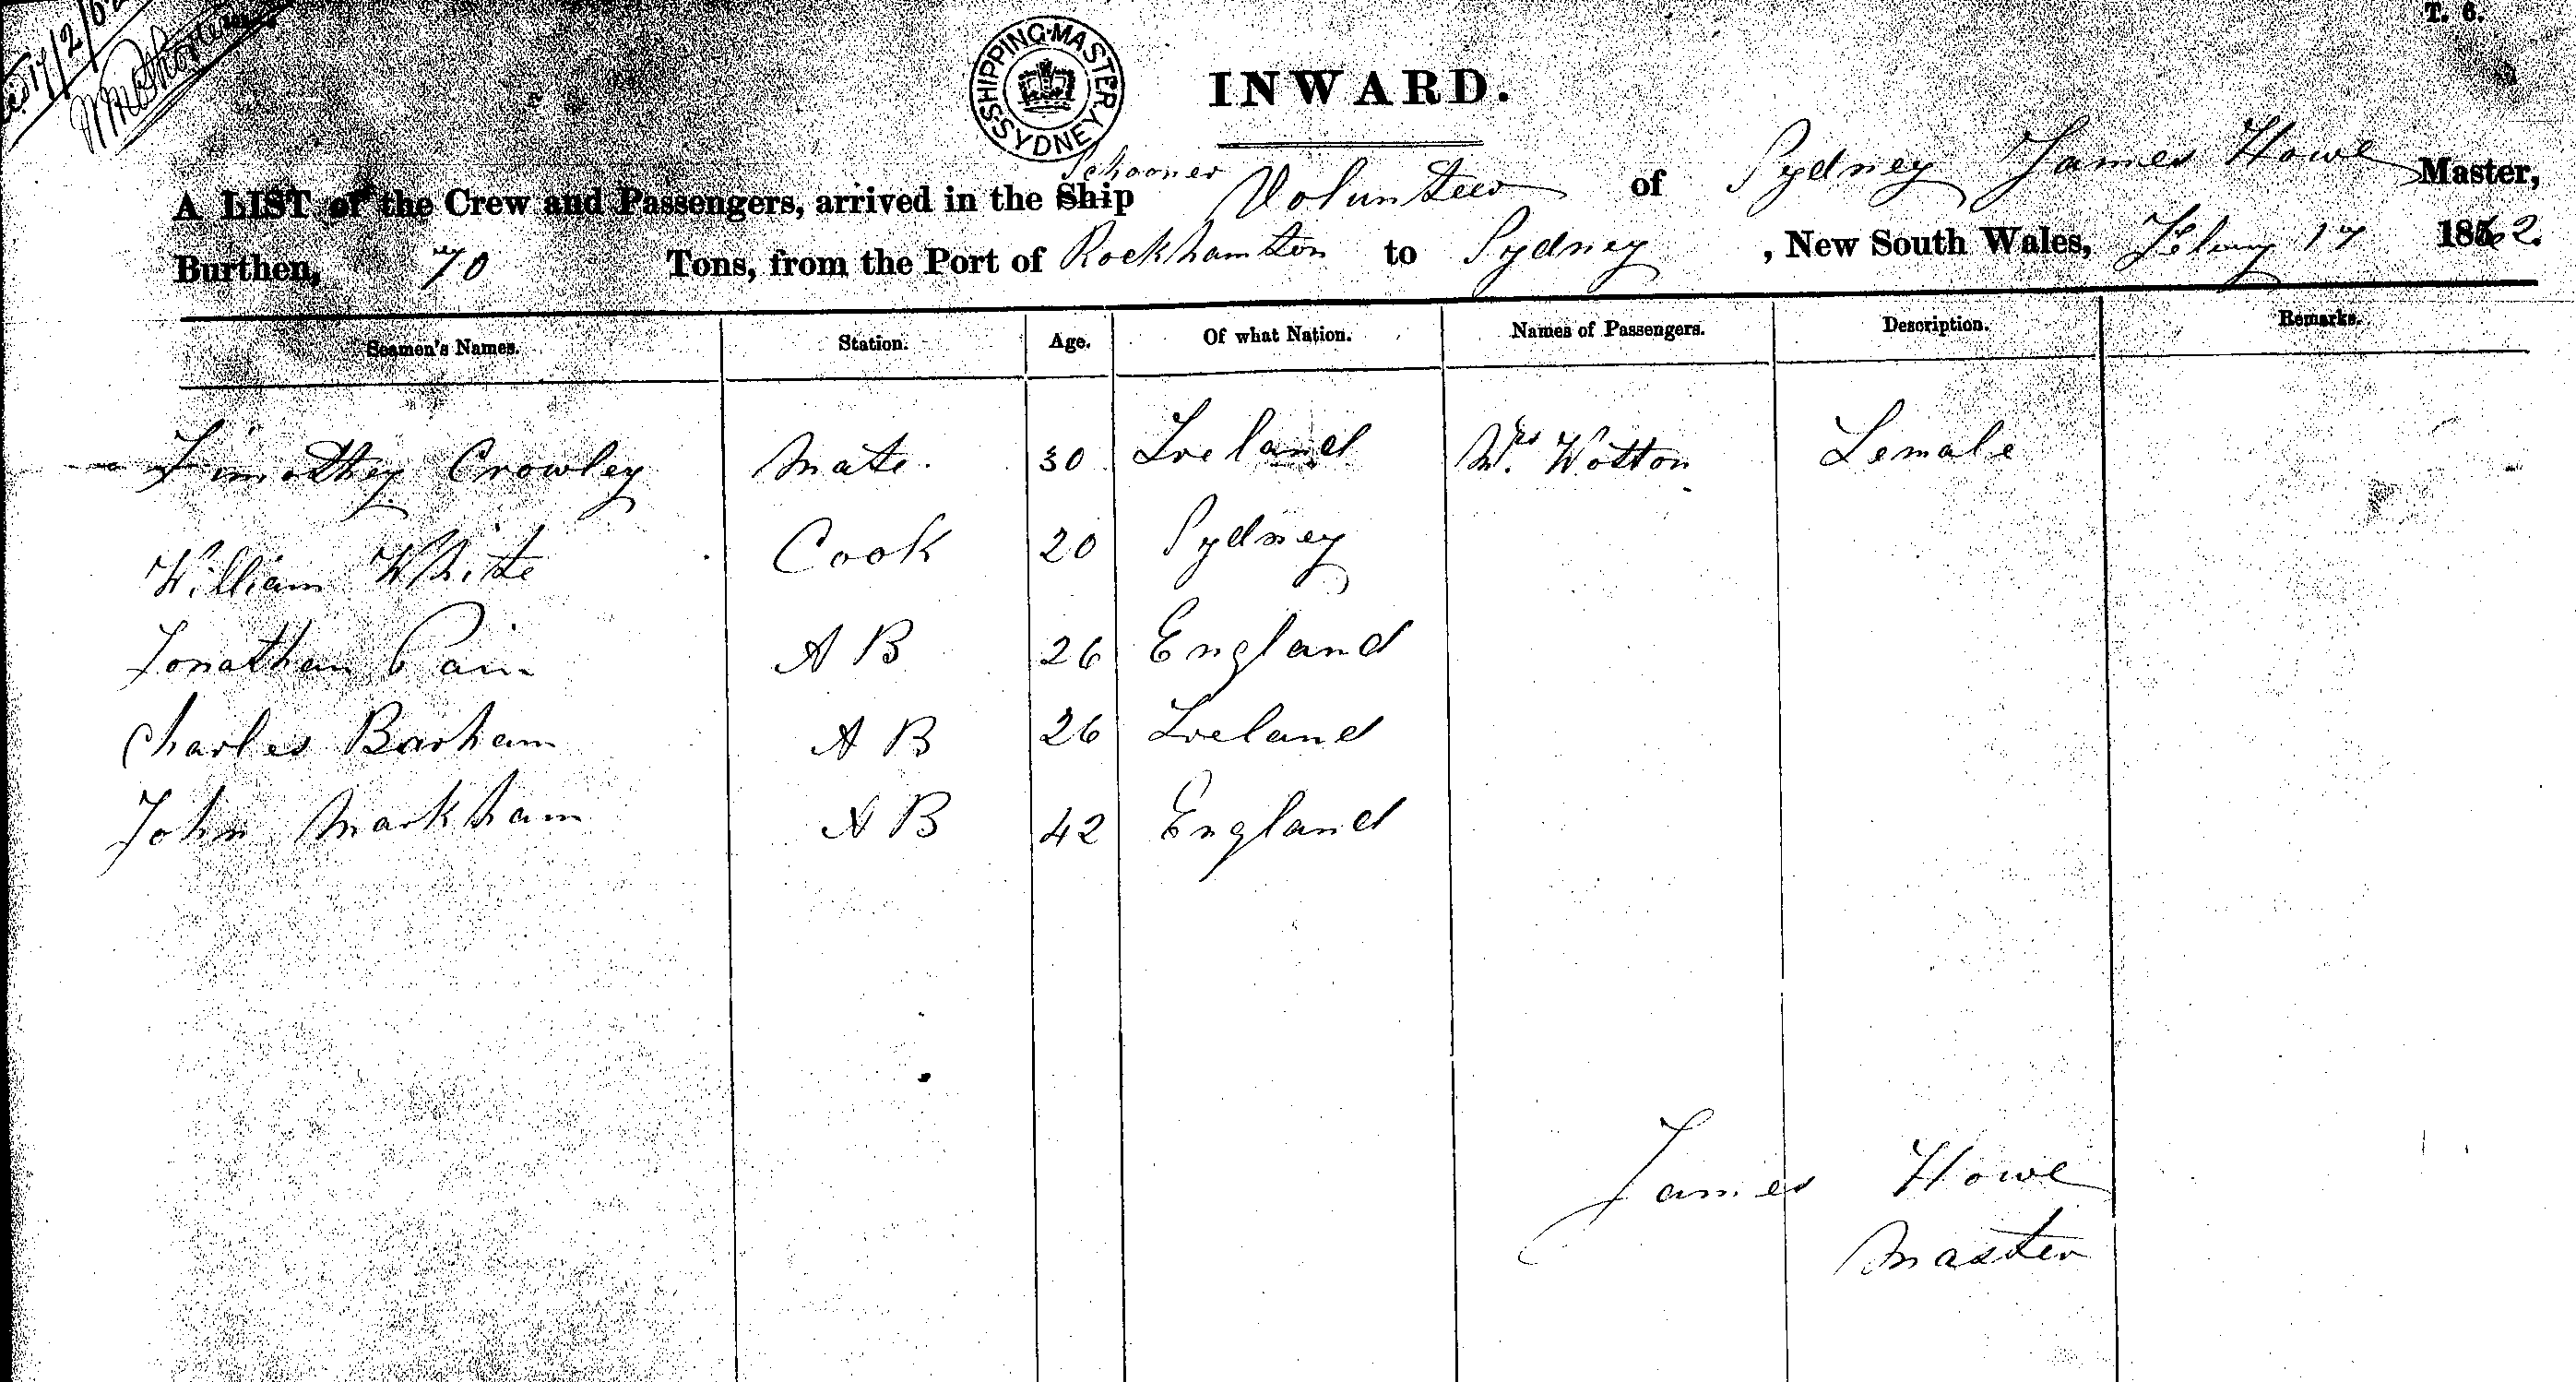 17/2/62
T. 6.
SHIPPING MASTER SYDNEY
INWARD.
Schooner
A LIST of the Crew and Passengers, arrived in the Ship Volunteer of Sydney James Howe Master,
Burthen, 70 Tons, from the Port of Rockhamton to Sydney, New South Wales, Febuy 17 1862.
Seamen's Names. Station. Age. Of what Nation. Names of Passengers. Description. Remarks.
Timothey Crowley Mate. 30 Ireland Mrs. Wotton Female
William White Cook 20 Sydney
Jonathan Pain A B 26 England
Charles Barham A B 26 Ireland
John Markham A B 42 England
James Howe
Master